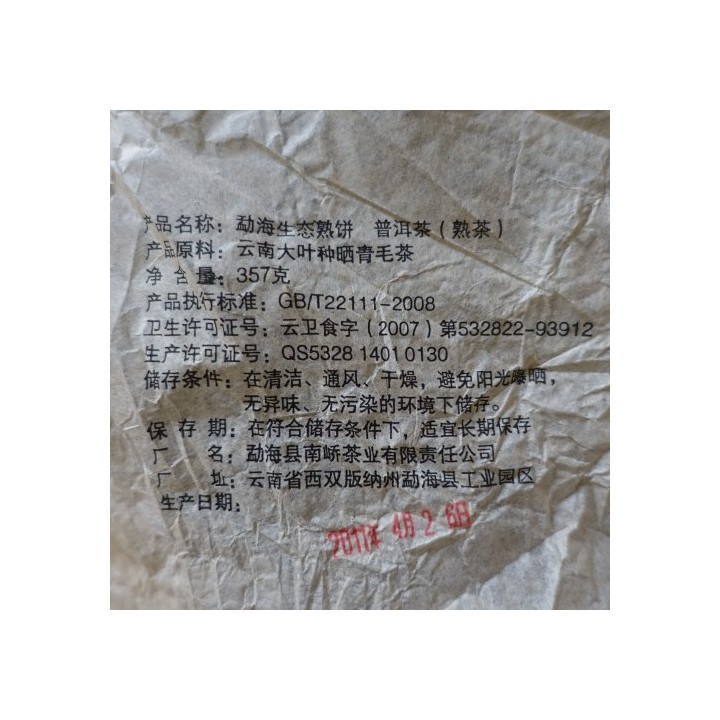 产品名称：勐海生态熟饼 普洱茶（熟茶）
产品原料：云南大叶种晒青毛茶
净含量：357克
产品执行标准：GB/T22111-2008
卫生许可证号：云卫食字（2007）第532822-93912
生产许可证号：QS5328 1401 0130
储存条件：在清洁、通风、干燥，避免阳光曝晒，
无异味、无污染的环境下储存。
保存期：在符合储存条件下，适宜长期保存
厂名：勐海县南峤茶业有限责任公司
厂址：云南省西双版纳州勐海县工业园区
生产日期：
2011年 4月 2 6日